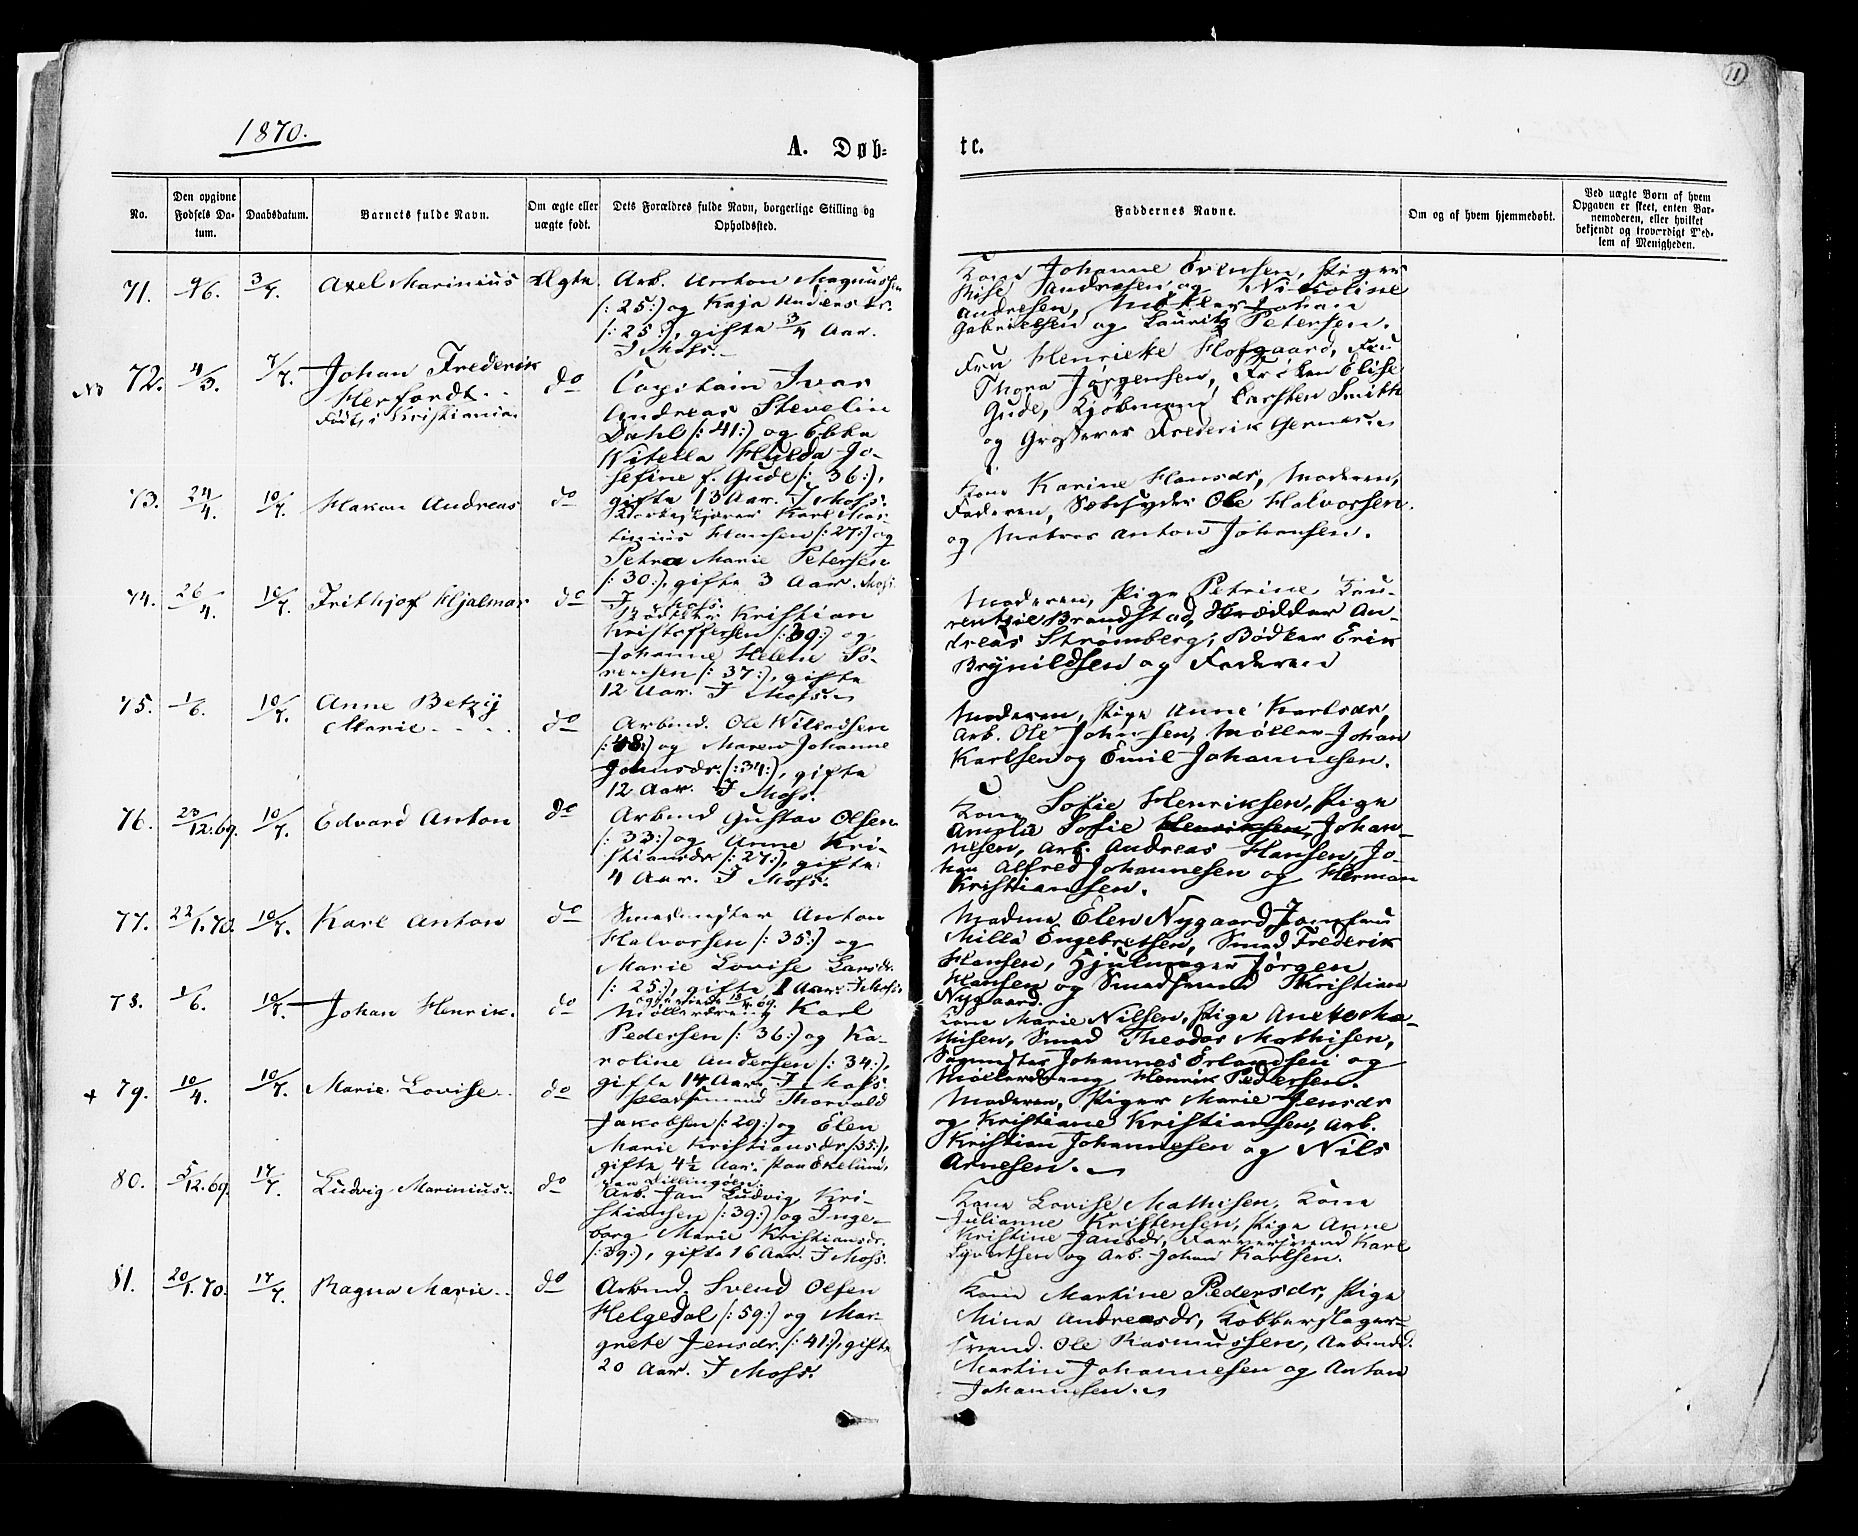 11
1870.
A. Døb-
te.
No.
Den opgivne
Fødsels Da-
tum.
Daabsdatum.
Barnets fulde Navn.
Om ægte eller
uægte født.
Dets Forældres fulde Navn, borgerlige Stilling og
Opholdssted.
Faddernes Navne.
Om og af hvem hjemmedøbt.
Ved uægte Børn af hvem
Opgaven er skeet, enten Bar-
nemoderen, eller hvilket
bekjendt og troværdigt Med-
lem af Menigheden.
71. 9/6. 3/7. Axel Marinius Ægte
Arb. Anton Magnussen
(: 25:) og Kaja Anders dr.
(: 25:), gifte 3/4 Aar.
I Moss.
Kone Johanne Evensen, Piger
Andresen og Nicoline
Andresen, Møller Johan
Gabrielsen og Lauritz Petersen.
72. 4/3. 7/7. Johan Frederik
Herfordt
Født i Kristiania
do
Capitain Ivar
Andreas Stevelin
Dahl (: 41:) og Ebba
Vitella Hulda Jo-
sefine f. Gude (: 36:),
gifte 13 Aar. I Moss.
Fru Henrieke Hofgaard, Fru
Thora Jørgensen, Frøken Elise
Gude, Kjøbmand Carsten Smith
og Grosserer Frederik
73. 24/4. 10/7. Hakon Andreas do
Karl Mar-
tinius Hansen (: 27:) og
Petra Marie Petersen
(: 30:), gifte 3 Aar. Moss.
Kone Karine Hansdr, Moderen,
Faderen, Sæbesyder Ole Halvorsen
og Matros Anton Johansen.
74. 26/4. 10/7. Frithjof Hjalmar do
I Moss.
Kristian
Kristoffersen (: 39:) og
Johanne Helene Sø-
rensen (: 37:), gifte
12 Aar. I Moss.
Moderen, Pige Petrine Lau-
rentzie Brandstad, Skrædder An-
dreas Strømberg, Bødker Erik
Brynildsen og Faderen
75. 1/6. 10/7. Anne Betzy
Marie
do
Arbmd. Ole Willadsen
(: 48:) og Maren Johanne
Johnsdr. (: 34:), gifte
12 Aar. I Moss.
Moderen, Pige Anne Karlsdr,
Arb. Ole Johnsen, Møller Johan
Karlsen og Emil Johannesen.
76. 23/12.69. 10/7. Edvard Anton do
Arbmd Gustav Olsen
(: 33:) og Anne Kri-
stiansdr (: 27:), gifte
4 Aar. I Moss.
Kone Sofie Henriksen, Pige
Amalie Sofie Henriksen, Johan-
nesen, Arb. Andreas Hansen, Jo-
han Alfred Johannesen og Herman
Kristiansen.
77. 22/1.70. 10/7. Karl Anton do
Smedmester Anton
Halvorsen (: 35:) og
Marie Lovise Larsdr.
(: 25:), gifte 1 Aar. I Moss
Madme Elen Nygaard, Jomfru
Milla Engebretsen, Smed Frederik
Hansen, Hjulmager Jørgen
Hansen og Smedsvend Kristian
Nygaard.
78. 1/6. 10/7. Johan Henrik. do
Møllerdreng Karl
Pedersen (: 36:) og Ka-
roline Andersen (: 34:),
gifte 14 Aar. I Moss
Kone Marie Nilsen, Pige Anette Ma-
thisen, Smed Theodor Mathisen,
Sagmester Johannes Erlandsen og
Møllerdreng Henrik Pedersen.
+ 79. 10/4. 10/7. Marie Lovise do
Thorvald
Jakobsen (: 29:) og Elen
Marie Kristiansdr (: 35:),
gifte 4½ Aar.
Moderen, Piger Marie Jensdr
og Kristiane Kristiansen, Arb.
Kristian Johannesen og Nils
Arnesen.
80. 5/12.69. 17/7. Ludvig Marinius do
Arb. Jan Ludvig Kri-
stiansen (: 39:) og Inge-
borg Marie Kristiansdr.
(: 39:), gifte 16 Aar. I Moss.
Kone Lovise Mathisen, Kone
Julianne Kristensen, Pige Anne
Kristine Jansdr, Farversvend Karl
Syvertsen og Arb. Johan Karlsen.
81. 20/1.70. 17/7. Ragna Marie do
Arbmd. Svend Olsen
Helgedal (: 59:) og Mar-
grete Jensdr. (: 41:), gifte
20 Aar. I Moss.
Kone Martine Pedersdr, Pige
Mina Andreasdr, Kobberslager-
svend Ole Rasmussen, Arbmd.
Martin Johannesen og Anton
Johannesen.